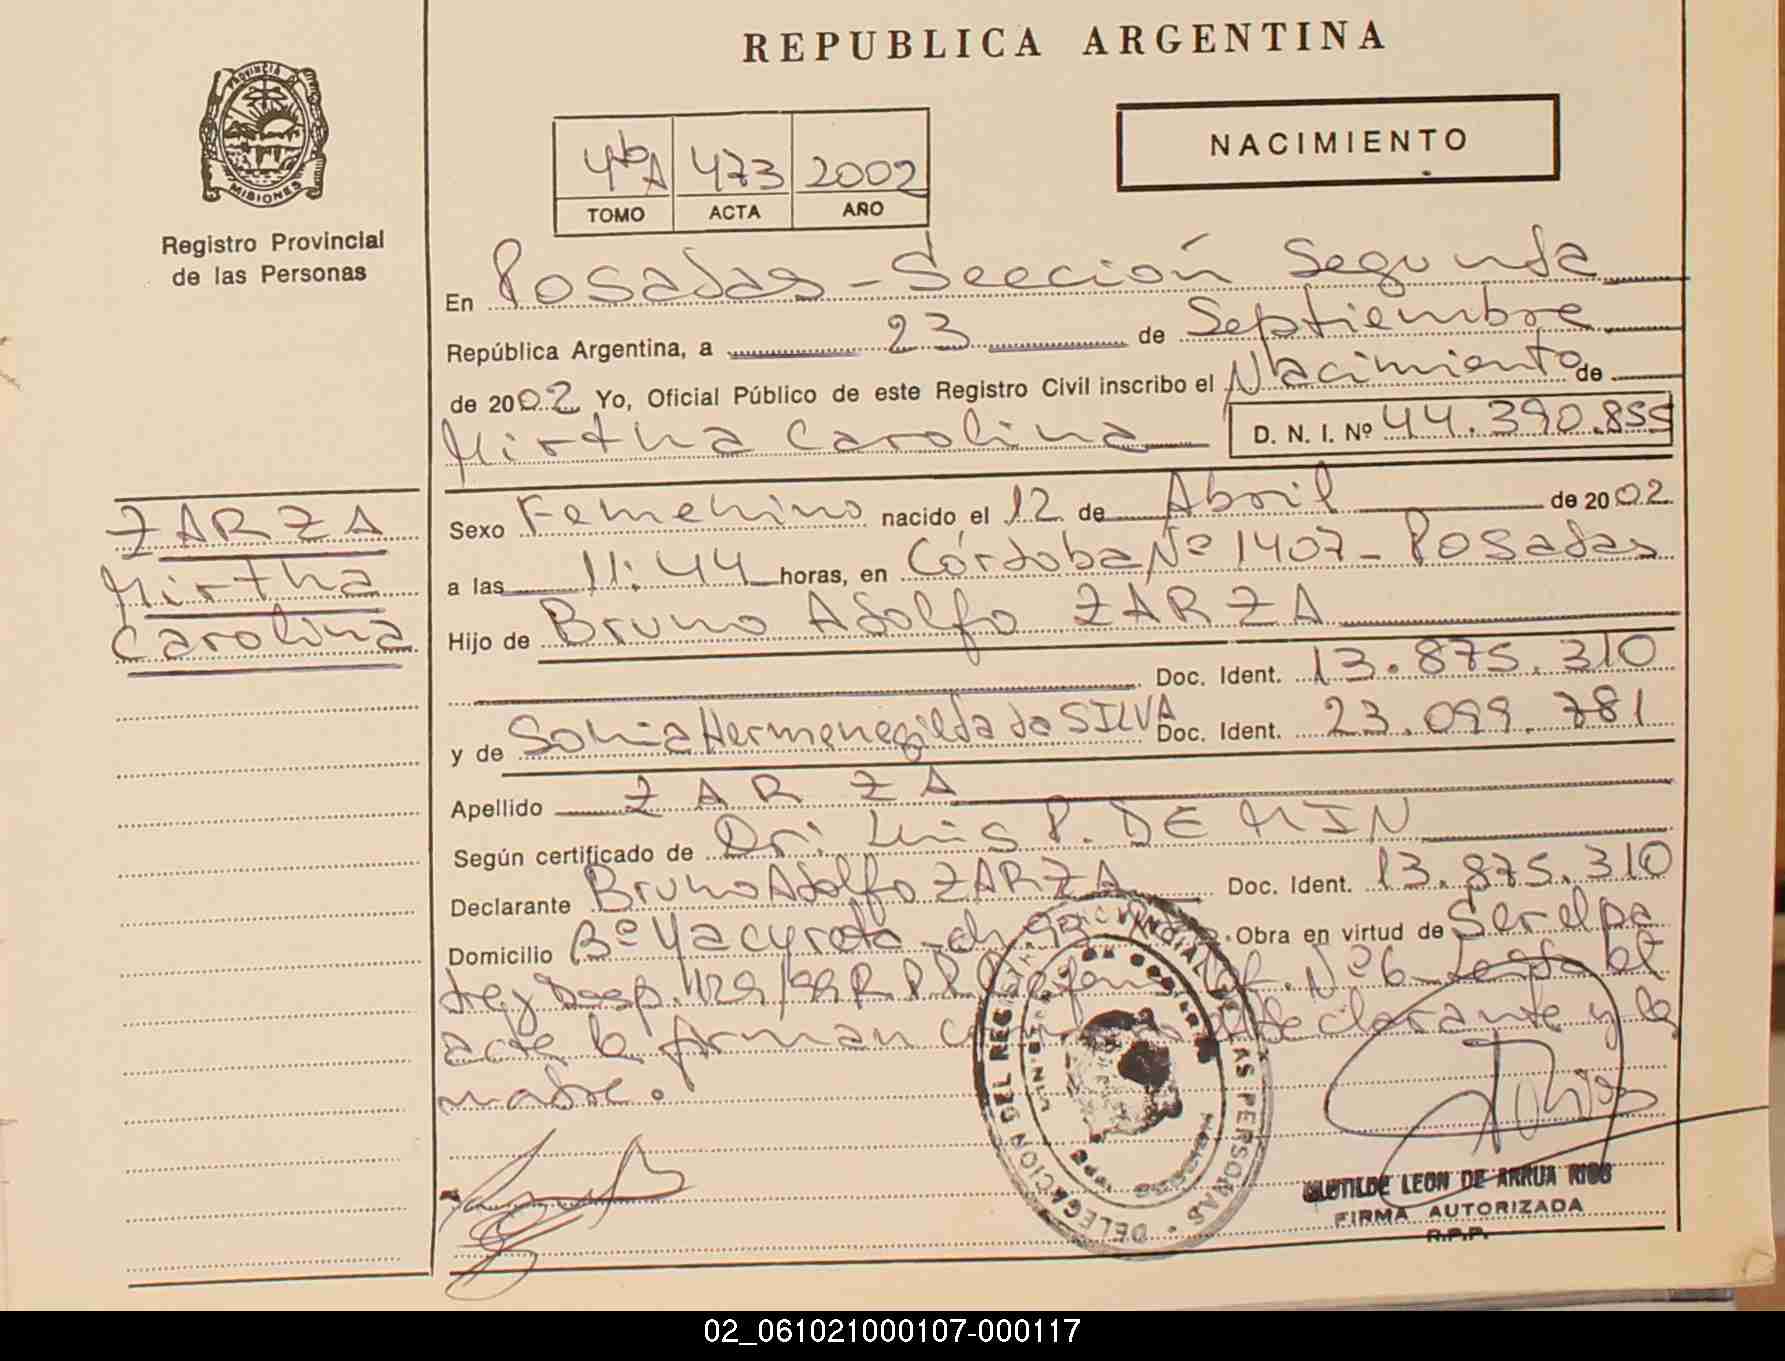 REPUBLICA ARGENTINA
PROVINCIA DE
MISIONES
Registro Provincial
de las Personas
NACIMIENTO
4toA 473 2002
TOMO ACTA AÑO
En Posadas - Sección Segunda
República Argentina, a 23 de Septiembre
de 2002 Yo, Oficial Público de este Registro Civil inscribo el Nacimiento de
Mirtha Carolina D. N. I. Nº 44.390.855
ZARZA
Mirtha
Carolina
Sexo Femenino nacido el 12 de Abril de 2002
a las 11:44 horas, en Córdoba Nº 1407 - Posadas
Hijo de Bruno Adolfo ZARZA
Doc. Ident. 13.875.310
y de Sonia Hermenegilda da SILVA Doc. Ident. 23.099.781
Apellido ZARZA
Según certificado de Dr: Luis P. DEMIN
Declarante Bruno Adolfo ZARZA Doc. Ident. 13.875.310
Domicilio Bº Yacyreta - ch Obra en virtud de
Disp. 129/99 R P P Nº 6
acta la firman el declarante y la
madre.
DELEGACION DEL REGISTRO PROVINCIAL DE LAS PERSONAS
CLOTILDE LEON DE ARRUA RIOS
FIRMA AUTORIZADA
R.P.P.
02_061021000107-000117